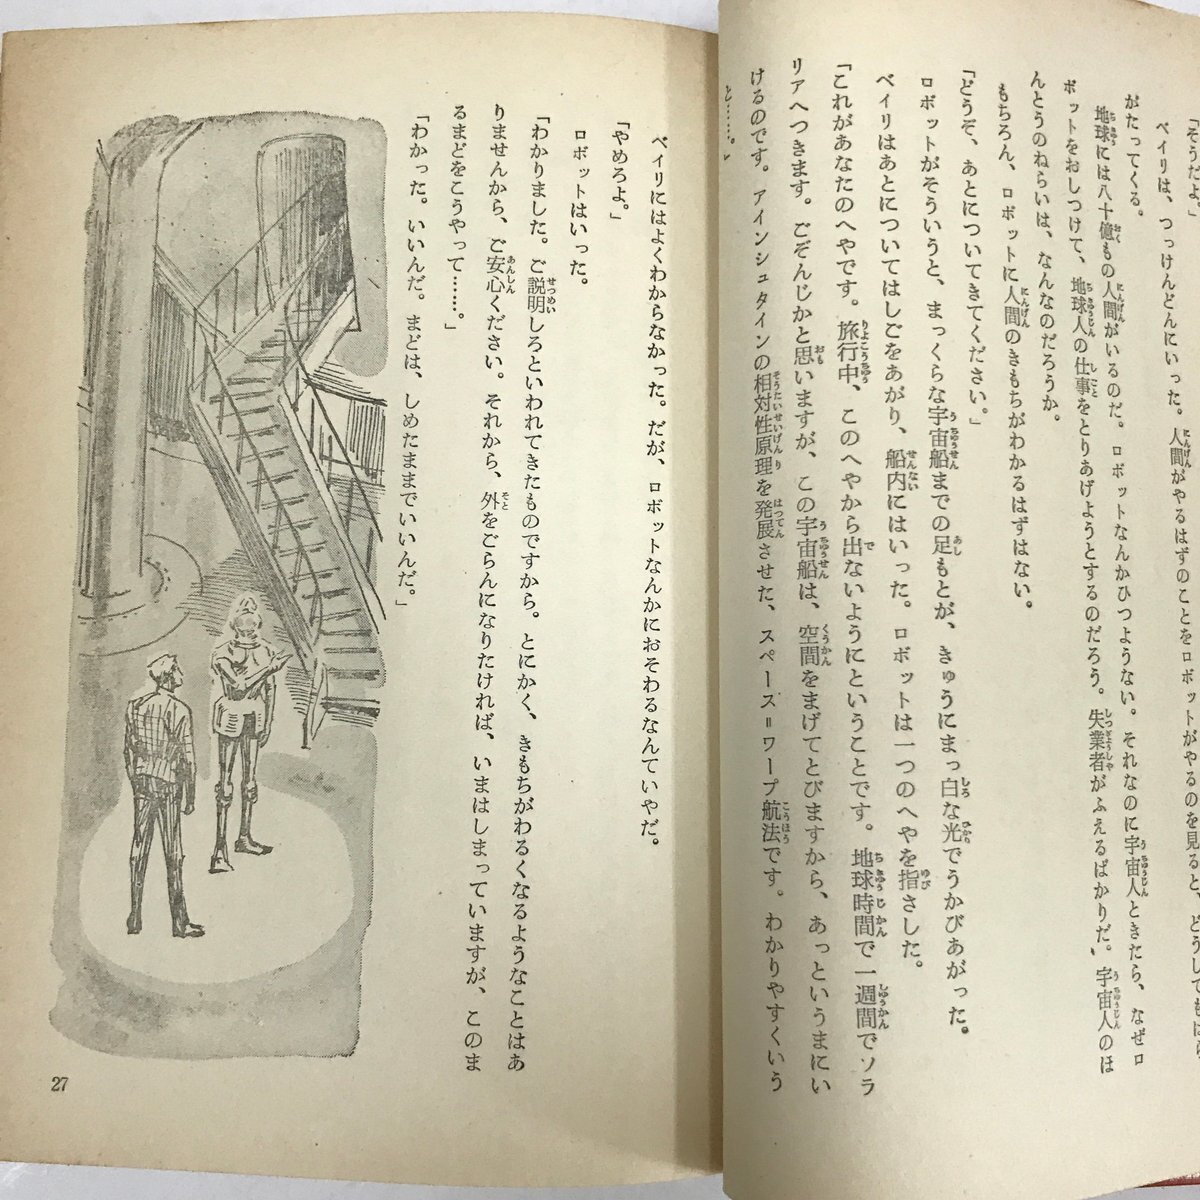 「そうだよ。」
ベイリは、つっけんどんにいった。人間がやるはずのことをロボットがやるのを見ると、どうしても
がたってくる。
地球には八十億もの人間がいるのだ。ロボットなんかひつようない。それなのに宇宙人ときたら、なぜロ
ボットをおしつけて、地球人の仕事をとりあげようとするのだろう。失業者がふえるばかりだ。宇宙人のほ
んとうのねらいは、なんなのだろうか。
もちろん、ロボットに人間のきもちがわかるはずはない。
「どうぞ、あとについてきてください。」
ロボットがそういうと、まっくらな宇宙船までの足もとが、きゅうにまっ白な光でうかびあがった。
ベイリはあとについてはしごをあがり、船内にはいった。ロボットは一つのへやを指さした。
「これがあなたのへやです。旅行中、このへやから出ないようにということです。地球時間で一週間でソラ
リアへつきます。ごぞんじかと思いますが、この宇宙船は、空間をまげてとびますから、あっというまにい
けるのです。アインシュタインの相対性原理を発展させた、スペース＝ワープ航法です。わかりやすくいう
と……。」
ベイリにはよくわからなかった。だが、ロボットなんかにおそわるなんていやだ。
「やめろよ。」
ロボットはいった。
「わかりました。ご説明しろといわれてきたものですから。とにかく、きもちがわるくなるようなことはあ
りませんから、ご安心ください。それから、外をごらんになりたければ、いまはしまっていますが、このま
るまどをこうやって……。」
「わかった。いいんだ。まどは、しめたままでいいんだ。」
27